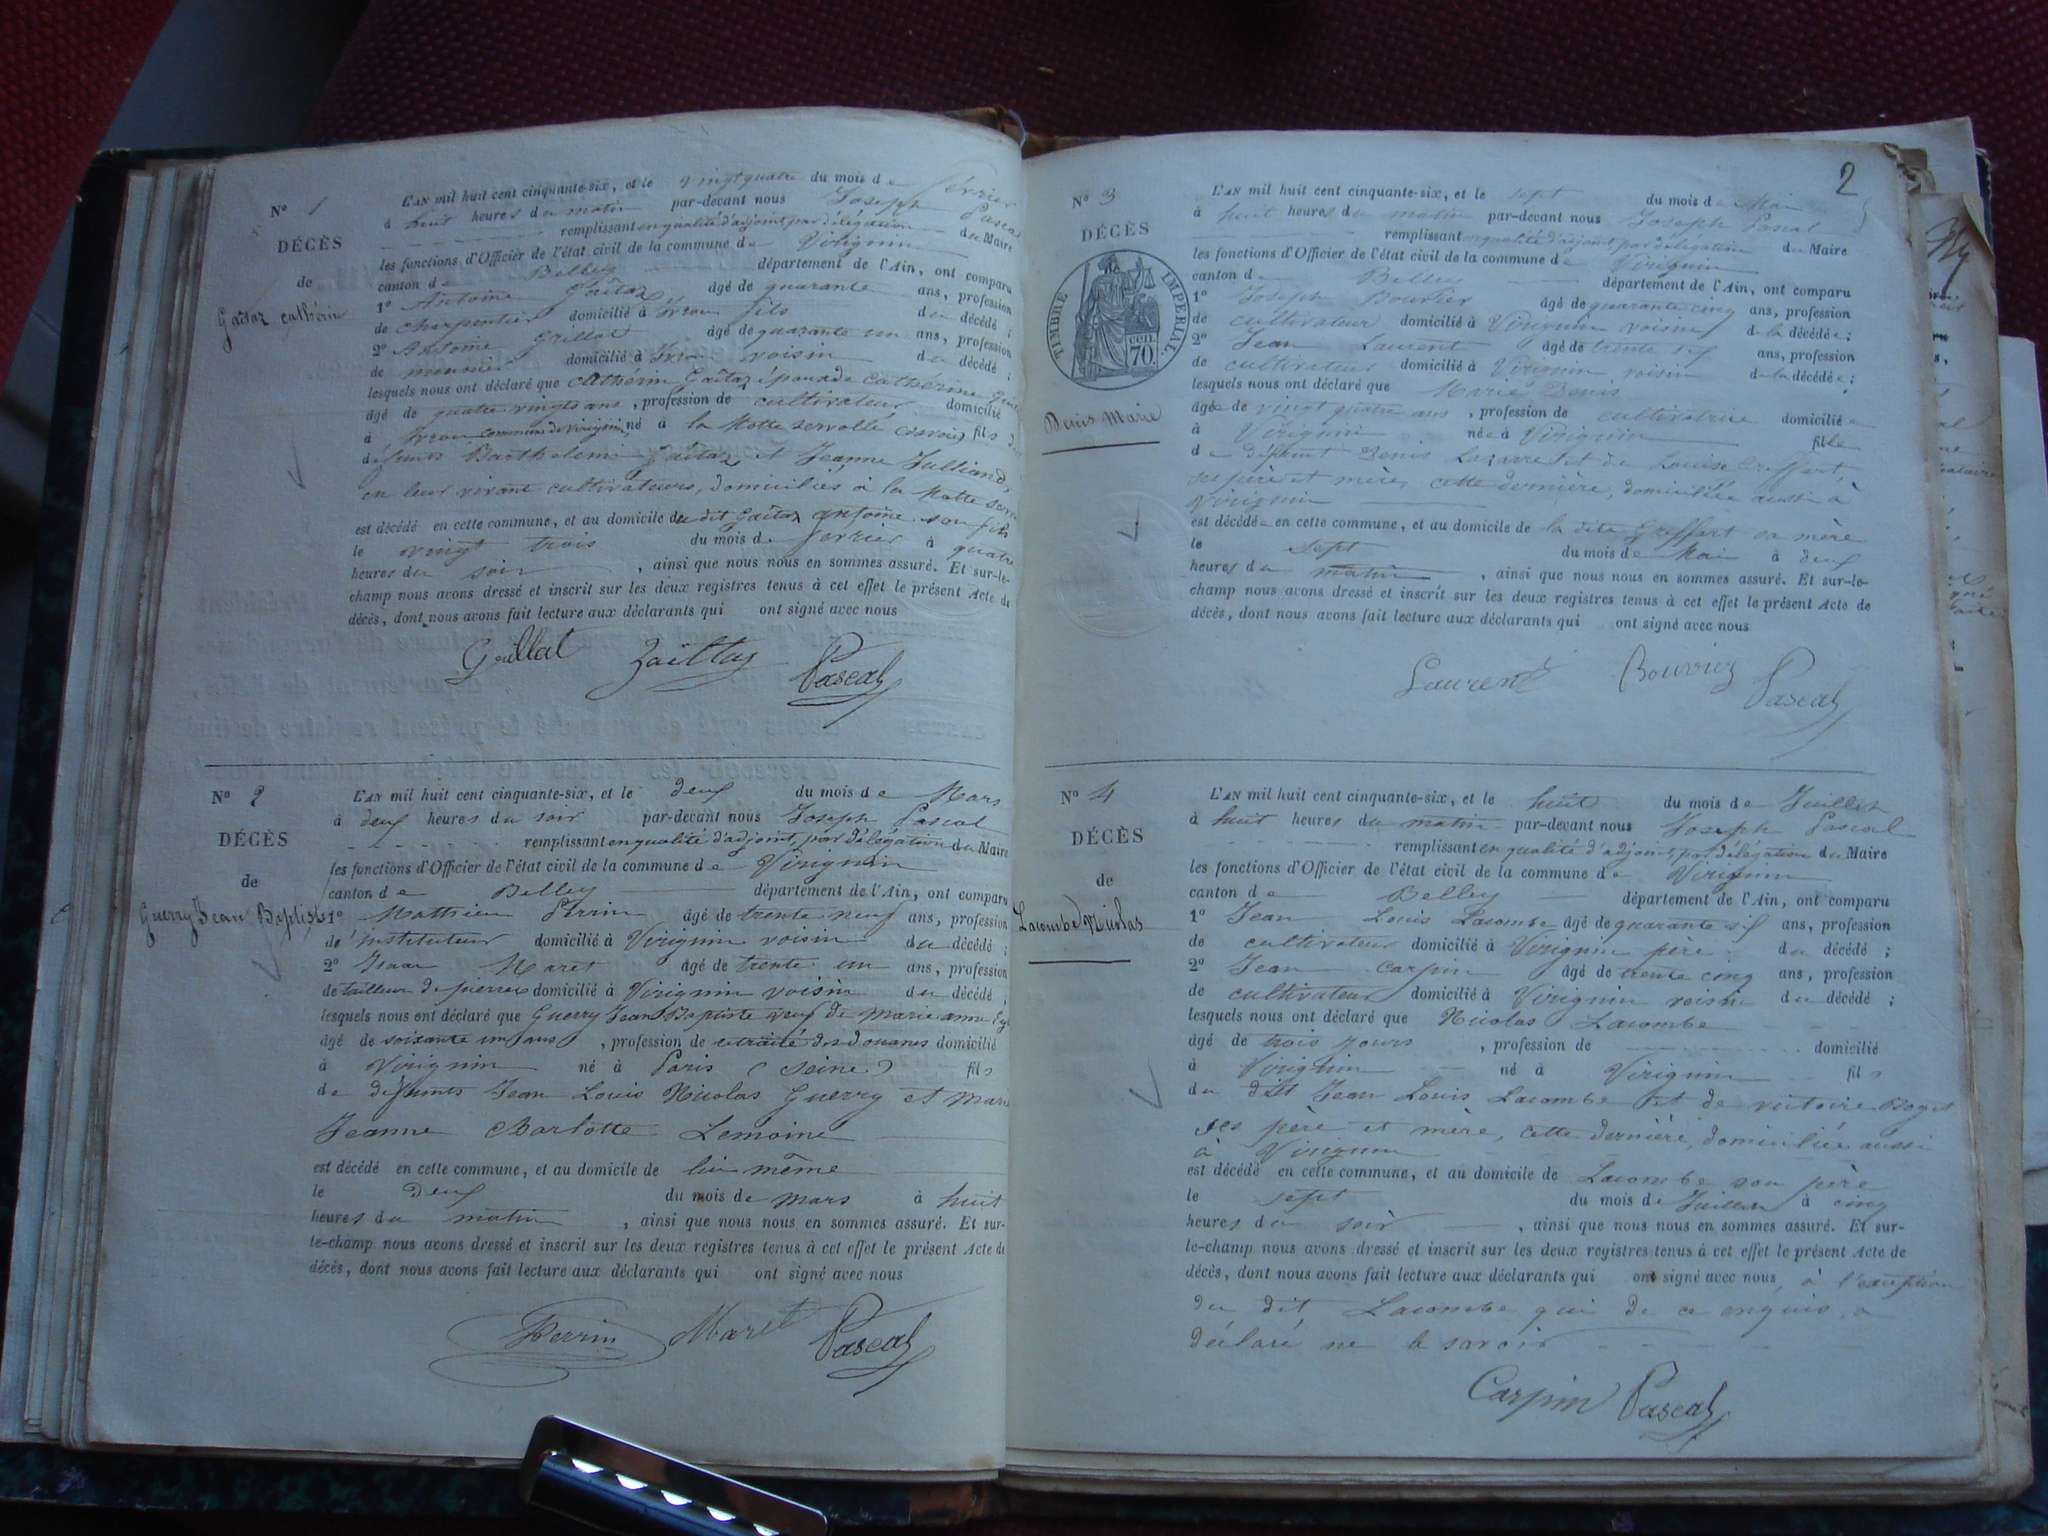 N° 1
DÉCÈS
de
Gaëtaz Cathérin
L'AN mil huit cent cinquante-six, et le vingt quatre du mois de février
à huit heures du matin par-devant nous Joseph Pascal
remplissant en qualité d'adjoint, par délégation du Maire
les fonctions d'Officier de l'état civil de la commune de Virignin
canton de Belley département de l'Ain, ont comparu
1° Antoine Gaëtaz âgé de quarante ans, profession
de charpentier domicilié à fils du décédé ;
2° Antoine Grillat âgé de quarante un ans, profession
de menuisier domicilié à voisin du décédé ;
lesquels nous ont déclaré que Cathérin Gaëtaz époux de Cathérine
âgé de quatre vingts ans, profession de cultivateur domicilié
à commune de Virignin, né à la Motte servolle (Savoie) fils de
défunts Barthelemi Gaëtaz et Jeanne Julliand,
en leur vivant cultivateurs, domiciliés à la Motte
est décédé en cette commune, et au domicile du dit Gaëtaz Antoine son fils
le vingt trois du mois de fevrier à quatre
heures du soir, ainsi que nous nous en sommes assuré. Et sur-le-
champ nous avons dressé et inscrit sur les deux registres tenus à cet effet le présent Acte de
décès, dont nous avons fait lecture aux déclarants qui ont signé avec nous
Grillat Gaëttaz Pascal
N° 2
DÉCÈS
de
Guerry Jean Baptiste
L'AN mil huit cent cinquante-six, et le deux du mois de Mars
à deux heures du soir par-devant nous Joseph Pascal
remplissant en qualité d'adjoint, par délégation du Maire
les fonctions d'Officier de l'état civil de la commune de Virignin
canton de Belley département de l'Ain, ont comparu
1° Mathieu Perrin âgé de trente neuf ans, profession
de instituteur domicilié à Virignin voisin du décédé ;
2° Isaac Maret âgé de trente un ans, profession
de tailleur de pierres domicilié à Virignin voisin du décédé ;
lesquels nous ont déclaré que Guerry Jean Baptiste veuf de Marie anne
âgé de soixante un ans, profession de retraité des douanes domicilié
à Virignin né à Paris (Seine) fils
de défunts Jean Louis Nicolas Guerry et Marie
Jeanne Charlotte Lemoine
est décédé en cette commune, et au domicile de lui même
le deux du mois de mars à huit
heures du matin, ainsi que nous nous en sommes assuré. Et sur-
le-champ nous avons dressé et inscrit sur les deux registres tenus à cet effet le présent Acte de
décès, dont nous avons fait lecture aux déclarants qui ont signé avec nous
Perrin Maret Pascal
2
N° 3
DÉCÈS
TIMBRE IMPÉRIAL.
CEN. 70.
Denis Marie
L'AN mil huit cent cinquante-six, et le sept du mois de Mai
à huit heures du matin par-devant nous Joseph Pascal
remplissant en qualité d'adjoint, par délégation du Maire
les fonctions d'Officier de l'état civil de la commune de Virignin
canton de Belley département de l'Ain, ont comparu
1° Joseph Bouvier âgé de quarante cinq ans, profession
de cultivateur domicilié à Virignin voisin de la décédée ;
2° Jean Laurent âgé de trente six ans, profession
de cultivateur domicilié à Virignin voisin de la décédée ;
lesquels nous ont déclaré que Marie Denis
âgée de vingt quatre ans, profession de cultivatrice domiciliée
à Virignin née à Virignin fille
de défunt Denis Lazarre et de Louise Greffart,
ses père et mère, cette dernière, domiciliée aussi à
Virignin
est décédée en cette commune, et au domicile de la dite Greffart sa mère
le sept du mois de Mai à deux
heures du matin, ainsi que nous nous en sommes assuré. Et sur-le-
champ nous avons dressé et inscrit sur les deux registres tenus à cet effet le présent Acte de
décès, dont nous avons fait lecture aux déclarants qui ont signé avec nous
Laurent Bouvier Pascal
N° 4
DÉCÈS
de
Lacombe Nicolas
L'AN mil huit cent cinquante-six, et le huit du mois de Juillet
à huit heures du matin par-devant nous Joseph Pascal
remplissant en qualité d'adjoint, par délégation du Maire
les fonctions d'Officier de l'état civil de la commune de Virignin
canton de Belley département de l'Ain, ont comparu
1° Jean Louis Lacombe âgé de quarante six ans, profession
de cultivateur domicilié à Virignin père du décédé ;
2° Jean Carpin âgé de trente cinq ans, profession
de cultivateur domicilié à Virignin voisin du décédé ;
lesquels nous ont déclaré que Nicolas Lacombe
âgé de trois jours, profession de domicilié
à Virignin né à Virignin fils
du dit Jean Louis Lacombe et de victoire Boget
ses père et mère, cette dernière, domiciliée aussi
à Virignin
est décédé en cette commune, et au domicile de Lacombe son père
le sept du mois de Juillet à cinq
heures du soir, ainsi que nous nous en sommes assuré. Et sur-
le-champ nous avons dressé et inscrit sur les deux registres tenus à cet effet le présent Acte de
décès, dont nous avons fait lecture aux déclarants qui ont signé avec nous, à l'exception
du dit Lacombe qui de ce enquis a
déclaré ne le savoir
Carpin Pascal